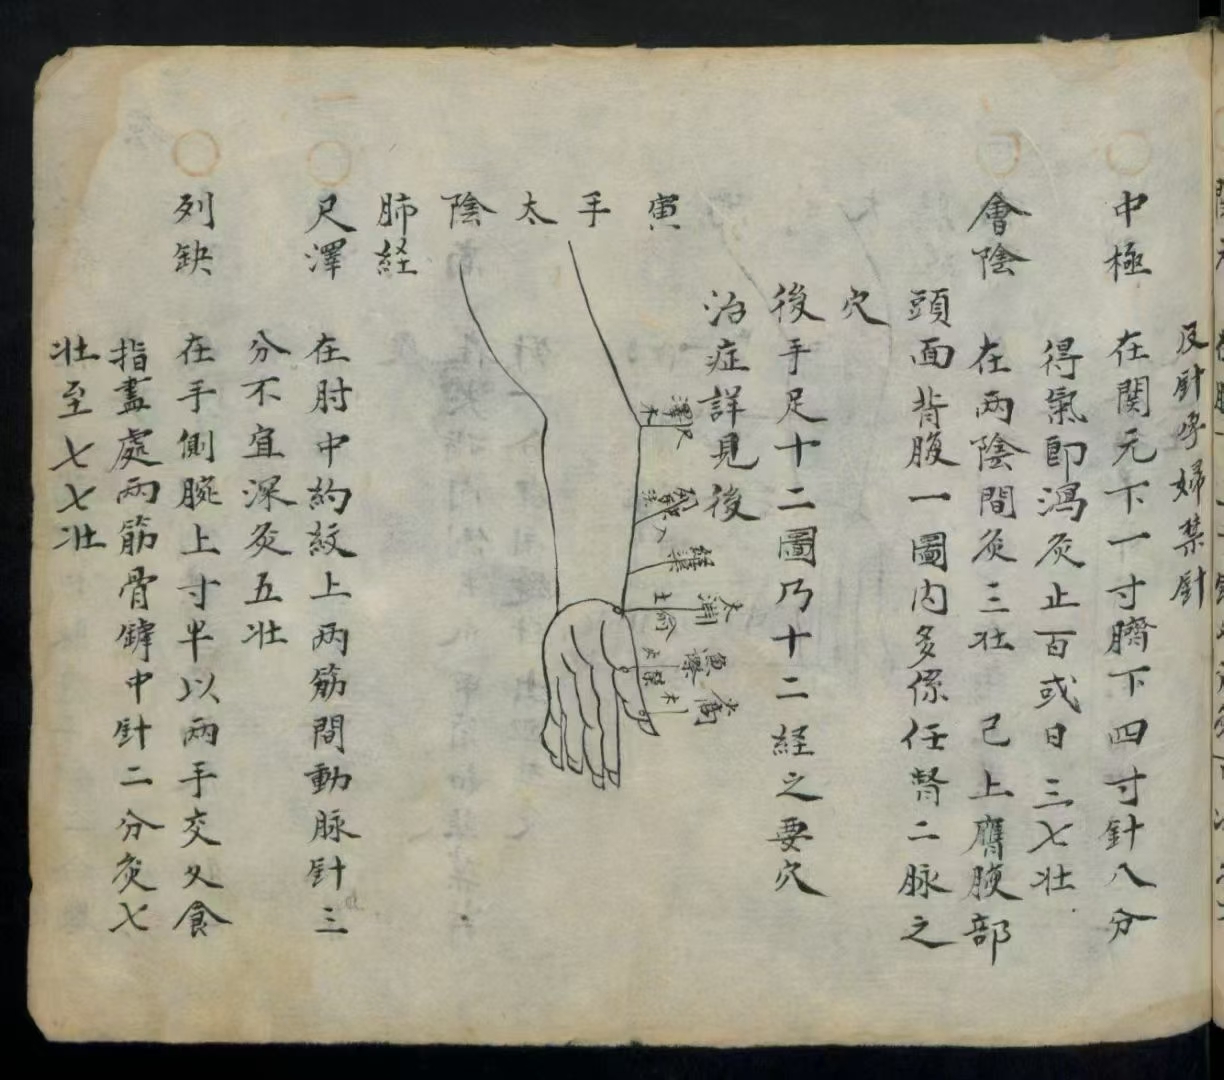 及針孕婦禁針
中極　在関元下一寸臍下四寸針八分
得氣即瀉灸止百或日三七壯
會陰　在兩陰間灸三壯　已上膺腴部
頭面背腹一圖内多係任督二脉之
穴
後手足十二圖乃十二経之要穴
治症詳見後
寅手太陰肺経
尺澤水
列缺
経渠
太淵土俞
魚際
尺澤　在肘中約紋上兩筋間動脉針三
分不宜深灸五壯
列缺　在手側腕上寸半以兩手交乂食
指盡處兩筋骨罅中針二分灸七
壯至七七壯